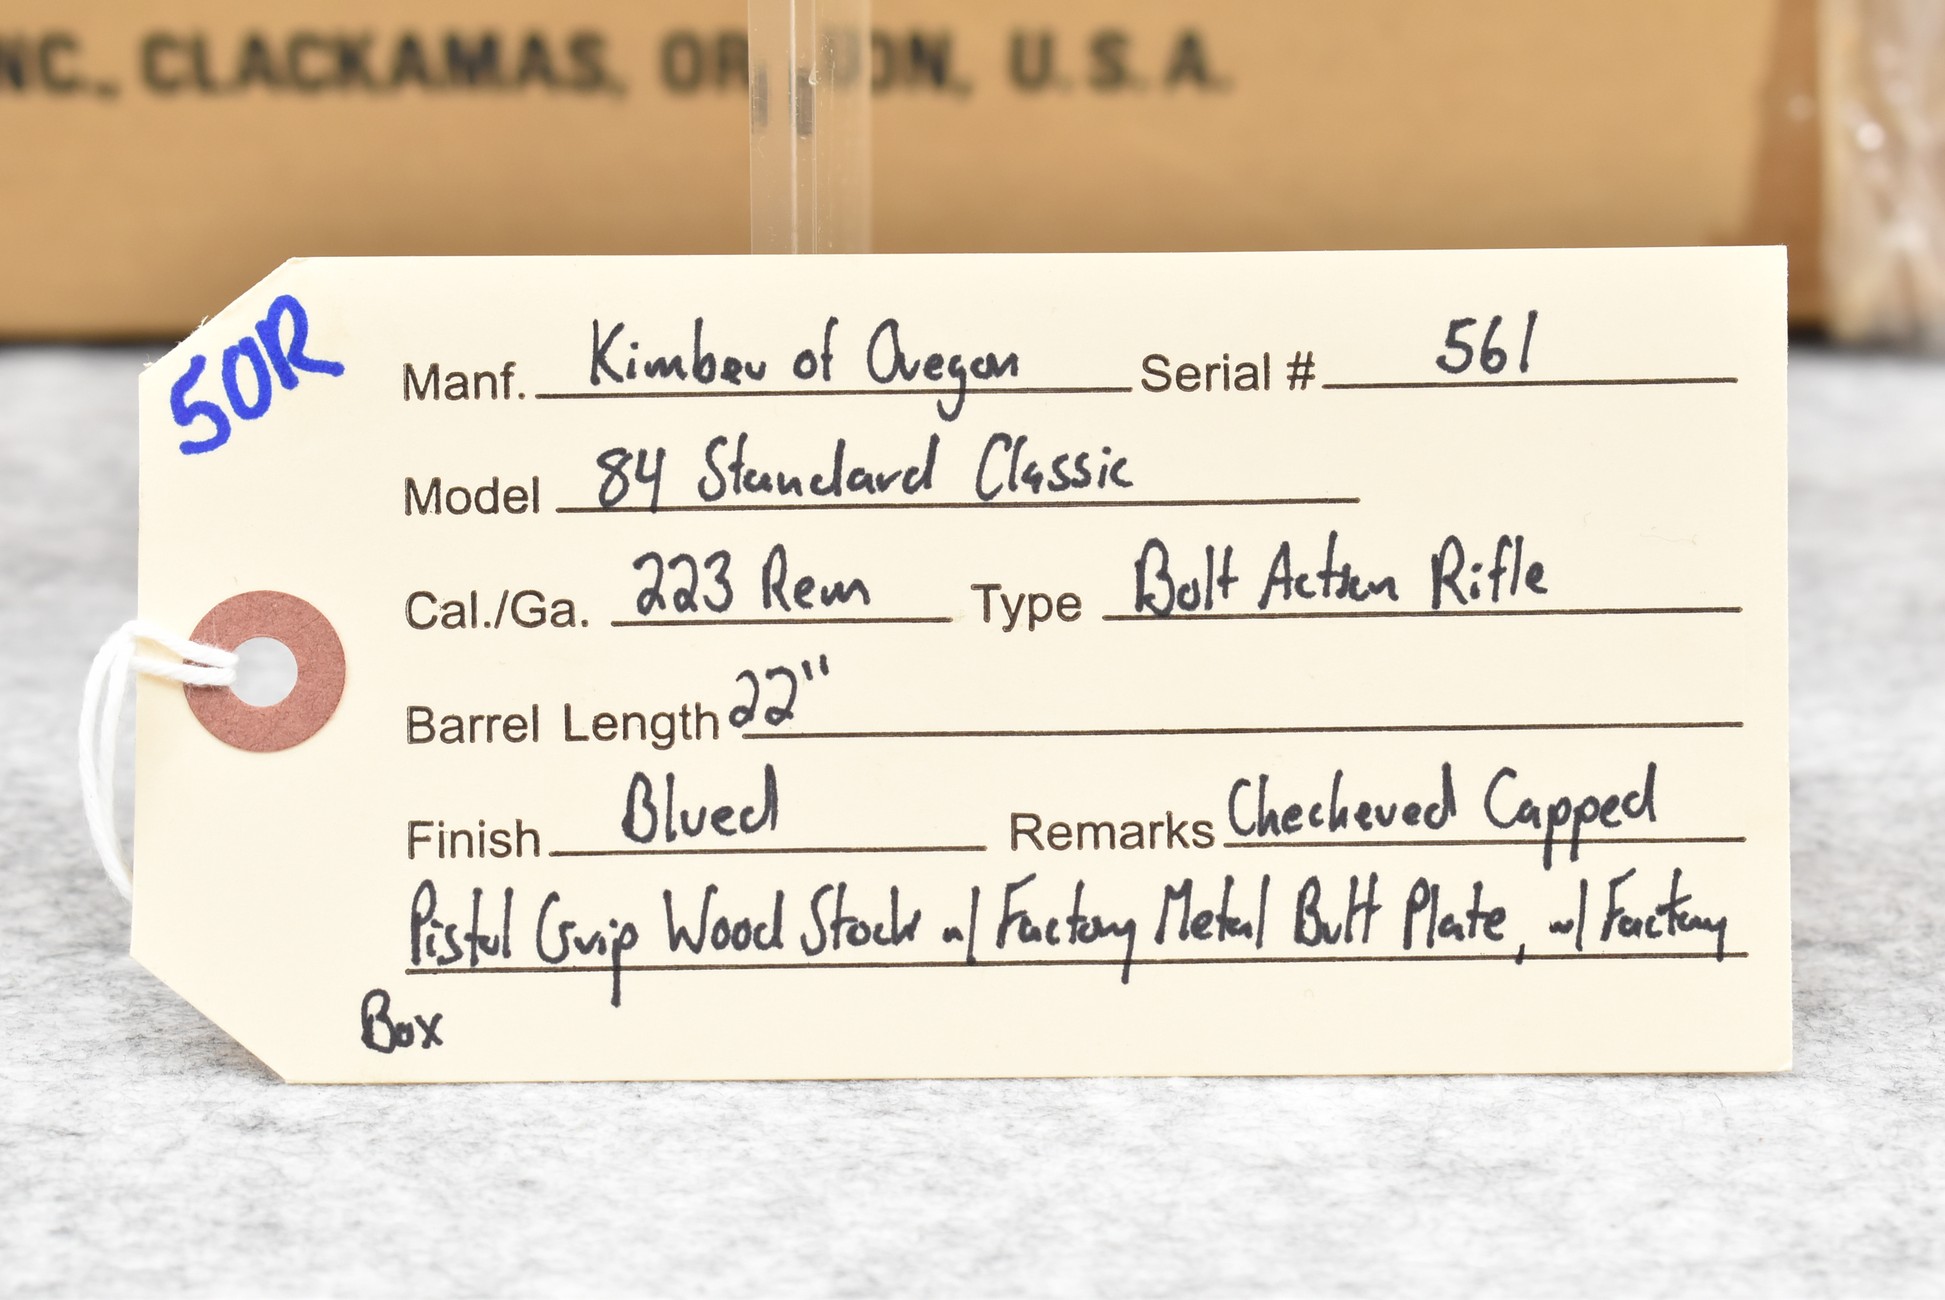 NC., CLACKAMAS, OR ON, U.S.A.
50R
Manf. Kimber of Oregon Serial # 561
Model 84 Standard Classic
Cal./Ga. 223 Rem Type Bolt Action Rifle
Barrel Length 22"
Finish Blued Remarks Checkered Capped
Pistol Grip Wood Stock w/ Factory Metal Butt Plate, w/ Factory
Box